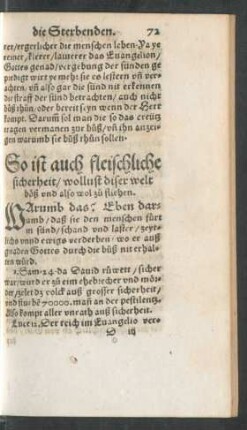 die Sterbenden. 72
ter/ergerlicher die menschen leben. Ya ye
reiner/klerer/lauterer das Euangelion/
Gottes genad/vergebung der sünden ge
predigt wirt ye mehr sie es lestern vñ ver-
achten. vñ also gar die sünd nit erkennen
die straff der sünd betrachten/auch nicht
büß thün/oder bereit seyn wenn der Herr
kompt. Darum sol man die so das creutz
tragen vermanen zur büß/vñ ihn anzei-
gen warumb sie büß thün sollen.
So ist auch fleischliche
sicherheit/wollust diser welt
böß vnd also wol zů fliehen.
WArumb das? Eben dar-
umb/daß sie den menschen fürt
in sünd/schand vnd laster/zeyt-
lichs vnnd ewigs verderben/wo er auß
gnaden Gottes durch die büß nit erhal-
ten würd.
2. Sam. 24. da Dauid rüwett/sicher
war/wurd er zů ein ehebrecher vnd mör-
der/zelet dz volck auß grosser sicherheit/
vnd sturbē 70000. mañ an der pestilentz.
Also kompt aller vnrath auß sicherheit.
Luce 12. Der reich im Euangelio ver-
S iij